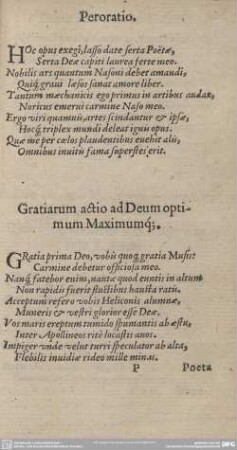 Peroratio.
HOc opus exegi, lasso date serta Poëtæ,
Serta Deæ capiti laurea ferte meo.
Nobilis ars quantum Nasoni debet amandi,
Quiq́; graui læsos sanat amore liber.
Tantum mæchanicis ego primus in artibus audax,
Noricus emerui carmine Naso meo.
Ergo viri quamuis artes scindantur & ipsæ,
Hocq́; triplex mundi deleat ignis opus.
Quæ me per cœlos plaudentibus euehit alis,
Omnibus inuitis fama superstes erit.
Gratiarum actio ad Deum opti-
mum Maximumq́;.
GRatia prima Deo, vobis quoq; gratia Musis
Carmine debetur officiosa meo.
Nanq́; fatebor enim, nauis quod euntis in altum
Non rapidis fuerit fluctibus hausta ratis.
Acceptum refero vobis Heliconis alumnæ,
Muneris & vestri glorior esse Deæ.
Vos maris ereptum tumido spumantis ab æstu,
Inter Apollineos ritè locastis auos.
Impiger vnde velut turri speculator ab alta,
Flebilis inuidiæ rideo mille minas.
P
Poeta